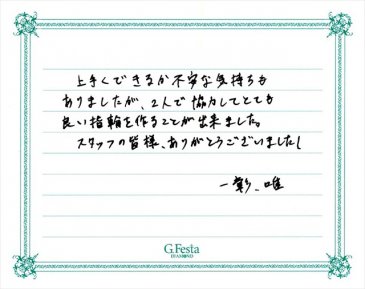 上手くできるか不安な気持ちも
ありましたが、2人で協力してとても
良い指輪を作ることが出来ました。
スタッフの皆様、ありがとうございました!
一彰、唯
G.Festa
DIAMOND